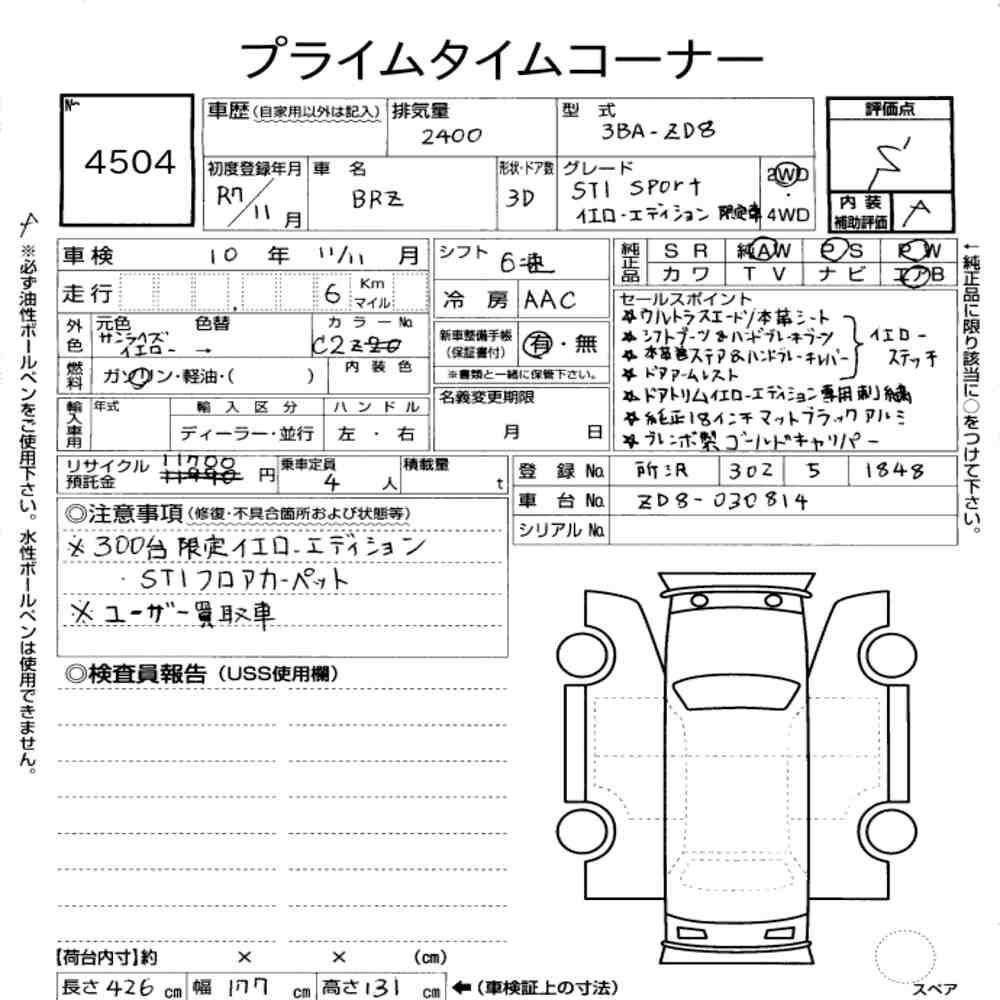 プライムタイムコーナー
No.
4504
車歴(自家用以外は記入)
排気量
2400
型 式
3BA-ZD8
評価点
S
初度登録年月
R7/11月
車 名
BRZ
形状・ドア数
3D
グレード
STI Sport
イエローエディション 限定車
2WD
・
4WD
内装
補助評価
A
車検 10年 11/11月
走行 6 Km マイル
シフト
6速
冷 房 AAC
純正品
SR 純AW PS PW
カワ TV ナビ エアB
外色
元色 色替
サンライズ
イエロー →
カラーNo.
C2Z
燃料
ガソリン・軽油・( )
内装色
新車整備手帳
(保証書付)
有・無
※書類と一緒に保管下さい。
輸入車用
年式
輸入区分
ハンドル
ディーラー・並行
左・右
名義変更期限
月 日
セールスポイント
☆ウルトラスエード/本革シート
☆シフトブーツ&ハンドブレーキブーツ
☆本革巻ステア&ハンドブレーキレバー
☆ドアアームレスト
イエロー
ステッチ
☆ドアトリムイエローエディション専用刺繍
☆純正18インチマットブラックアルミ
☆ブレンボ製ゴールドキャリパー
リサイクル
預託金
11700
円
乗車定員
4 人
積載量
t
登録No. 所沢 302 5 1848
車台No. ZD8-030814
シリアルNo.
◎注意事項(修復・不具合箇所および状態等)
※300台限定イエローエディション
・STIフロアカーペット
※ユーザー買取車
◎検査員報告(USS使用欄)
【荷台内寸】約 × × (cm)
長さ426cm 幅177cm 高さ131cm ←(車検証上の寸法)
スペア
※必ず油性ボールペンをご使用下さい。水性ボールペンは使用できません。
←純正品に限り該当に○をつけて下さい。